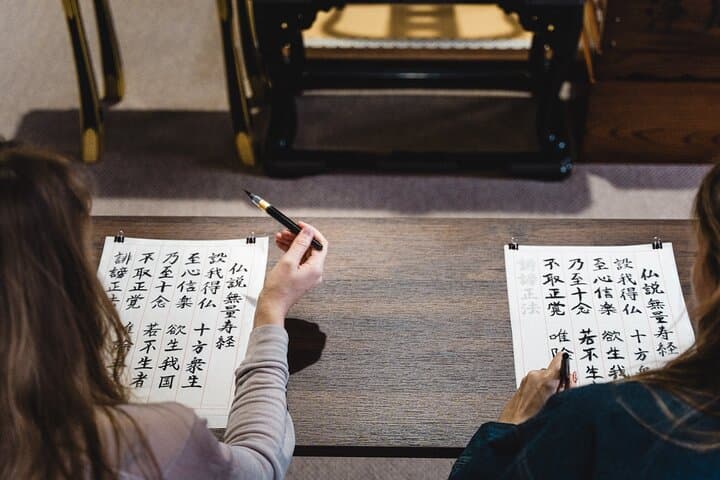 仏説無量寿経
設我得仏 十方衆生
至心信楽 欲生我国
乃至十念 若不生者
不取正覚 唯除
誹謗正法
仏説無量寿経
設我得仏 十方衆
至心信楽 欲生我
乃至十念 若不生
不取正覚 唯
誹謗正法